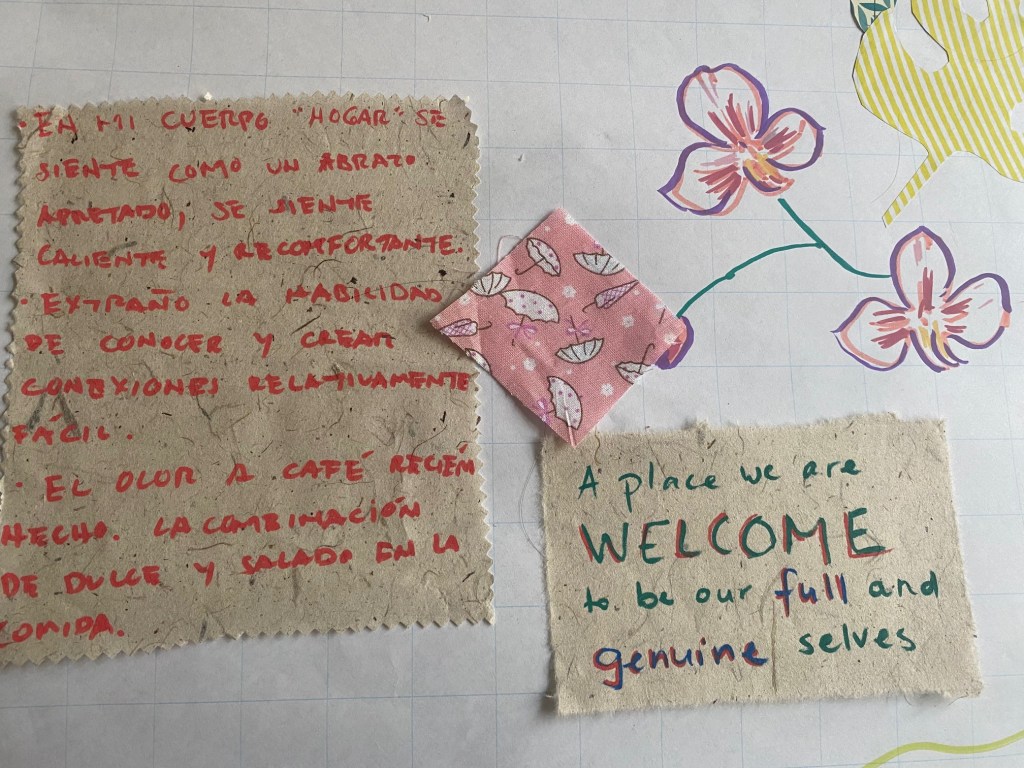 · EN MI CUERPO "HOGAR" SE
SIENTE COMO UN ABRAZO
APRETADO, SE SIENTE
CALIENTE Y RECOMFORTANTE.
· EXTRAÑO LA HABILIDAD
DE CONOCER Y CREAR
CONEXIONES RELATIVAMENTE
FÁCIL.
· EL OLOR A CAFÉ RECIÉN
HECHO. LA COMBINACIÓN
DE DULCE Y SALADO EN LA
COMIDA.
A place we are
WELCOME
to be our full and
genuine selves